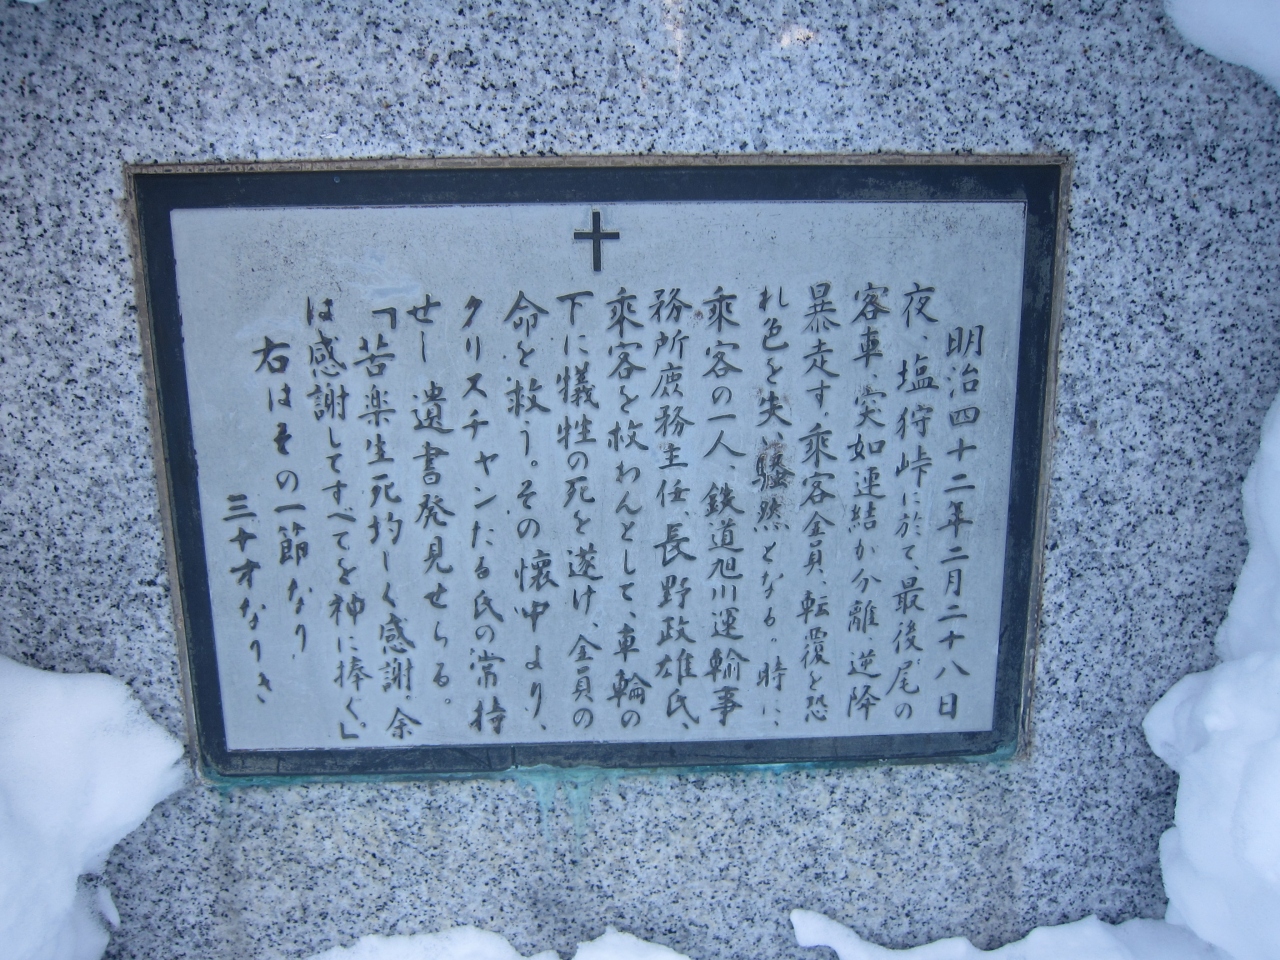 明治四十二年二月二十八日
夜、塩狩峠に於て、最後尾の
客車、突如連結が分離、逆降
暴走す。乗客全員、転覆を恐
れ色を失い騒然となる。時に、
乗客の一人、鉄道旭川運輸事
務所庶務主任、長野政雄氏、
乗客を救わんとして、車輪の
下に犠牲の死を遂げ、全員の
命を救う。その懐中より、
クリスチャンたる氏の常持
せし遺書発見せらる。
「苦楽生死均しく感謝。余
は感謝してすべてを神に捧ぐ。」
右はその一節なり
三十才なりき